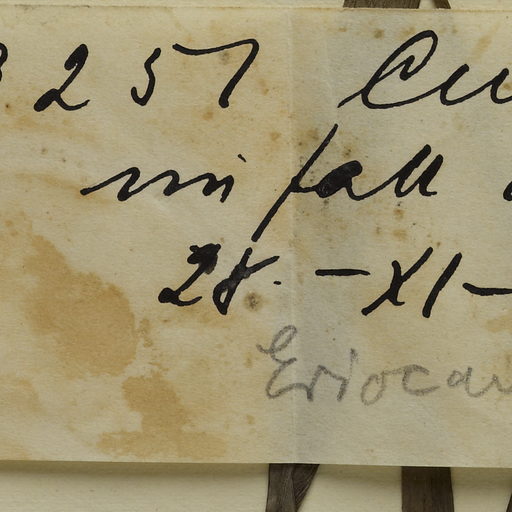 3257 Cu
mi fall
28.-XI-
Eriocau